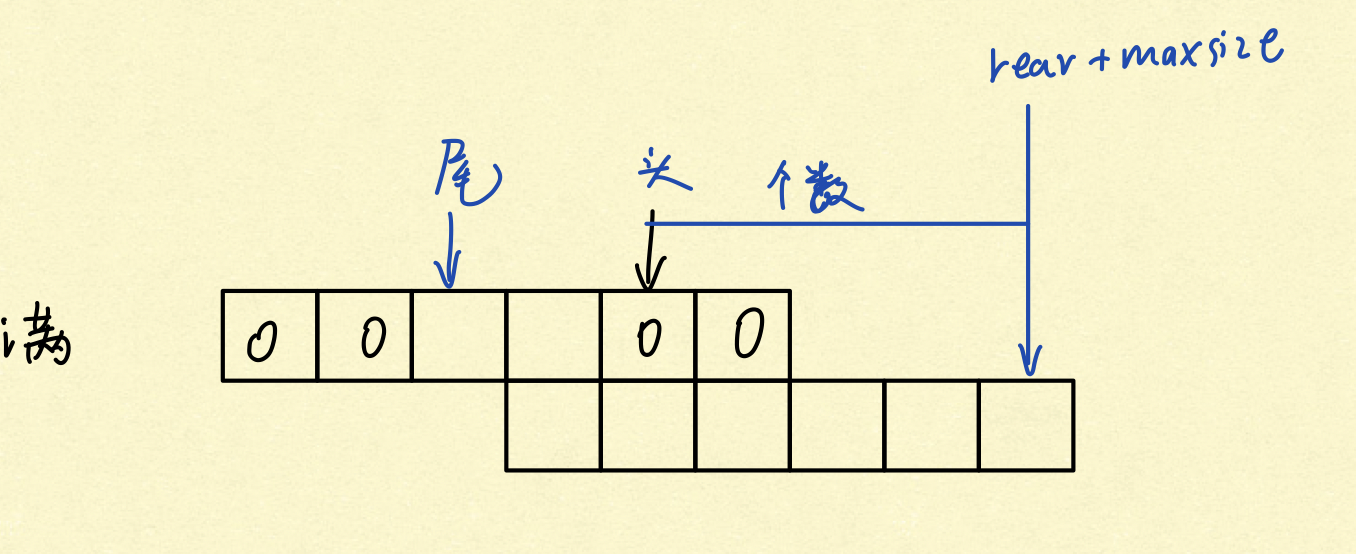 rear+maxsize
尾 头 个数
满 0 0 0 0